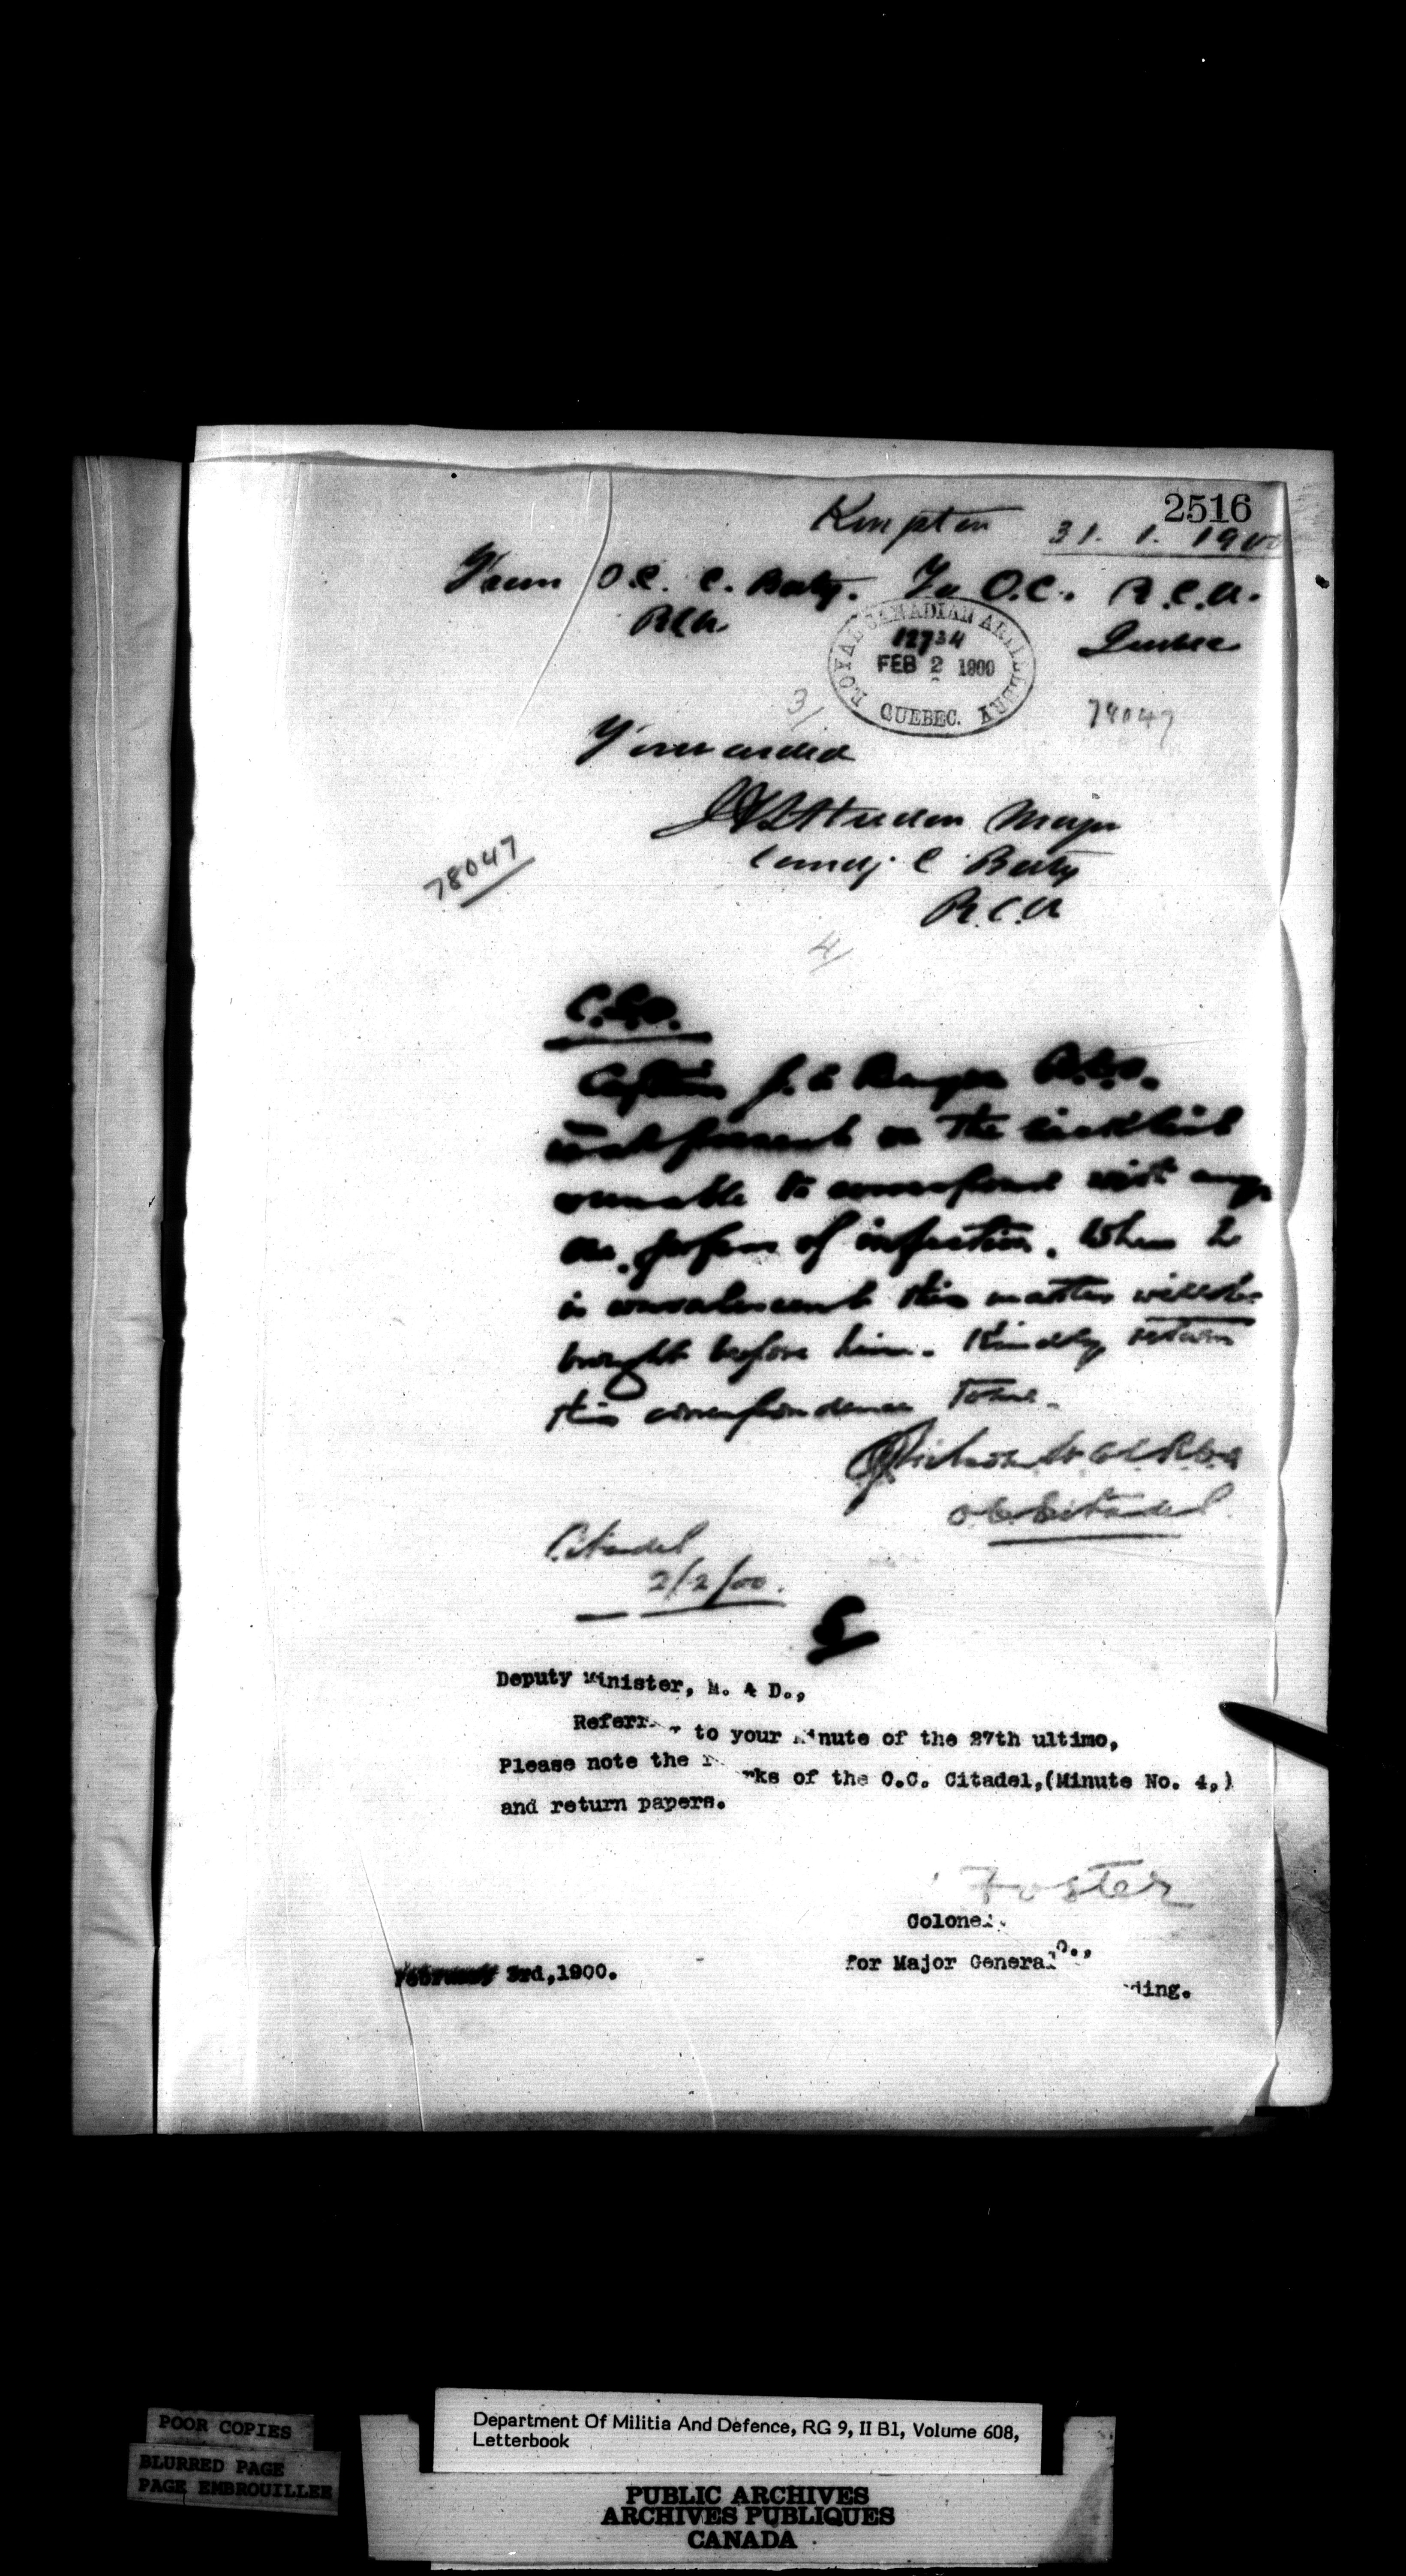 2516
Kingston 31. 1. 1900
From O.C. C. Baty. To O.C. R.C.A.
R.C.A. Quebec
ROYAL CANADIAN ARTILLERY
12734
FEB 2 1900
QUEBEC.
3/
78047
Forwarded
Major
78047
Comdg C Baty
R.C.A
4/
C.S.O.
Captain J. E R.C.A.
is at present on the sick list
unable to correspond with any
one. of infection. When he
is convalescent this matter will be
brought before him. Kindly return
this correspondence to me.
O.C. Citadel.
Citadel
2/2/00.
5
Deputy Minister, M. & D.,
to your Minute of the 27th ultimo,
Please note the of the O.C. Citadel,(Minute No. 4,)
and return papers.
Foster
Colonel
for Major General
February 3rd,1900.
POOR COPIES
BLURRED PAGE
PAGE EMBROUILLEE
Department Of Militia And Defence, RG 9, II B1, Volume 608,
Letterbook
PUBLIC ARCHIVES
ARCHIVES PUBLIQUES
CANADA